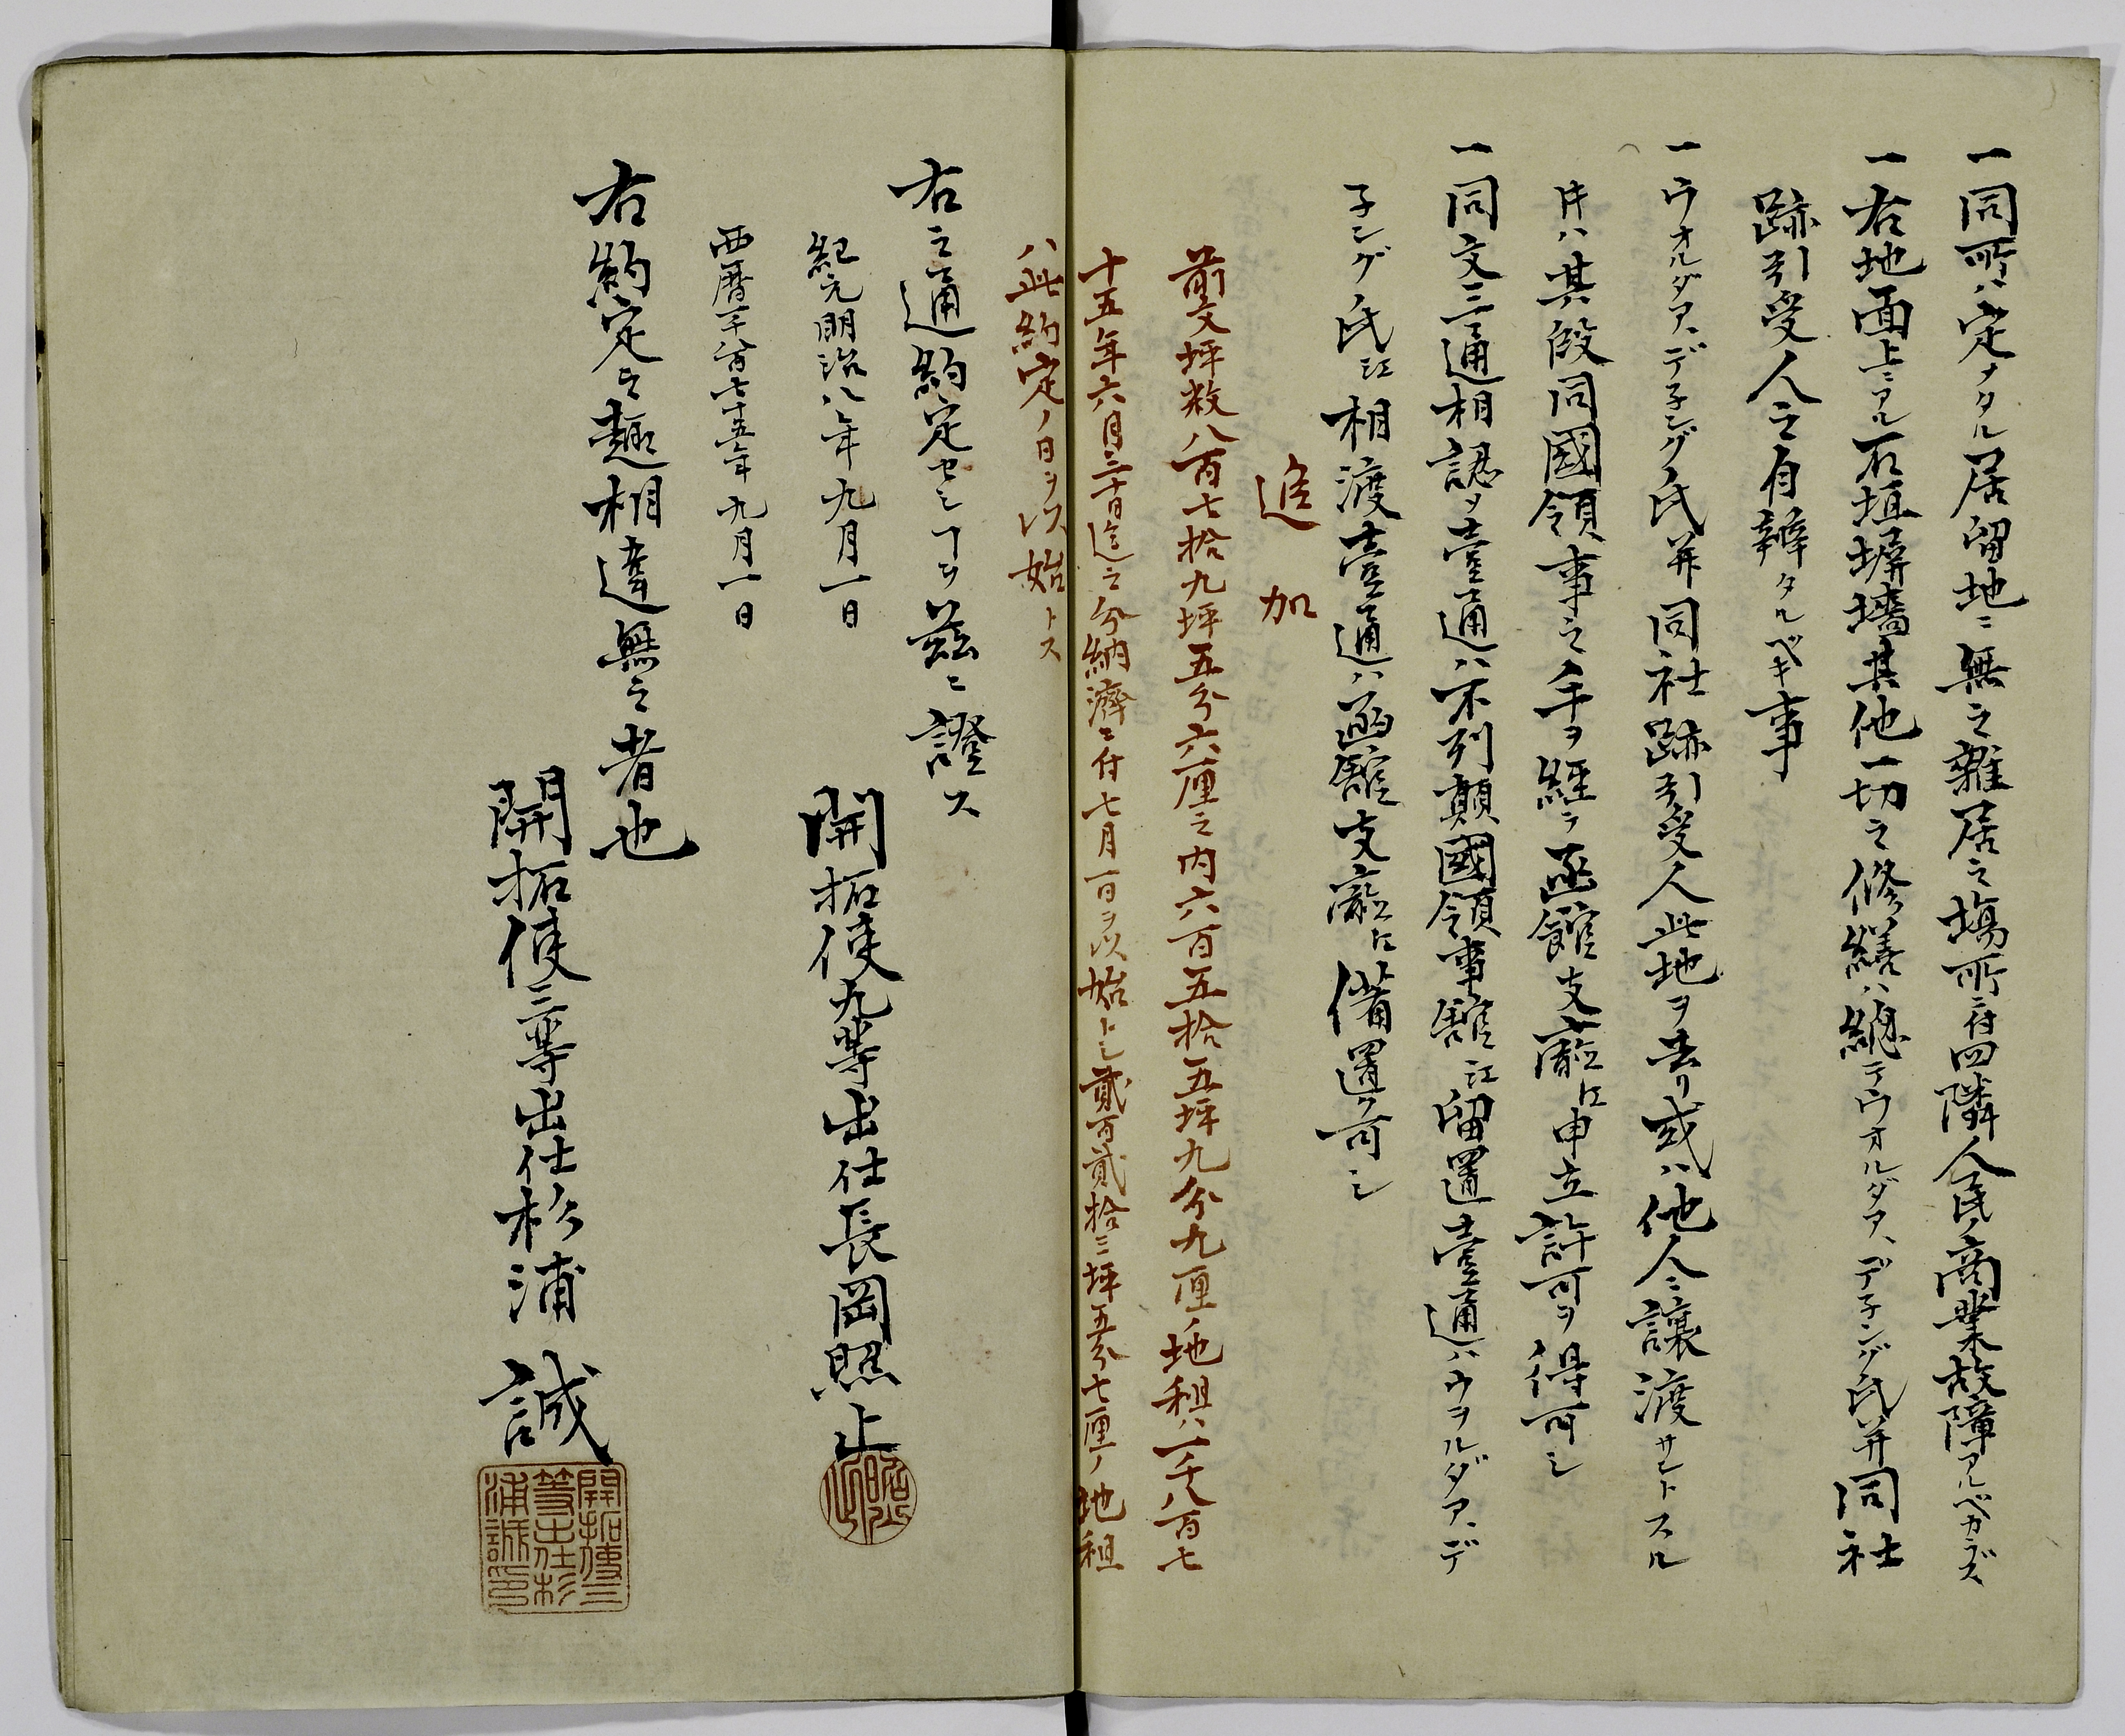 一同所ハ定メタル居留地ニ無之雑居之場所ニ付四隣人民ノ商業故障アルベカラズ
一右地面上ニアル石垣塀墻其他一切之修繕ハ總テウオルダア、デ子ング氏并同社
跡引受人之自辨タルベキ事
一ウオルダア、デ子ング氏并同社跡引受人此地ヲ去リ或ハ他人ニ讓渡サントスル
片ハ其段同國領事之手ヲ經テ函館支廳江申立許可ヲ得可シ
一同文三通相認メ壹通ハ不列顛國領事館江留置壹通ハウヲルダア、デ
子ング氏江相渡壹通ハ函館支廳江備置ク可シ
追加
前文坪数八百七拾九坪五分六厘之内六百五拾五坪九分九厘ノ地租ハ一千八百七
十五年六月三十日迄之分納濟ニ付七月一日ヲ以始トシ貳百貳拾三坪五分七厘ノ地租
ハ此約定ノ日ヲ以始トス
右之通約定セシヿヲ茲ニ證ス
紀元明治八年九月一日
西暦千八百七十五年九月一日
開拓使九等出仕長岡照止
右約定之趣相違無之者也
開拓使三等出仕杉浦誠
照止
開拓使三
等出仕杉
浦誠印